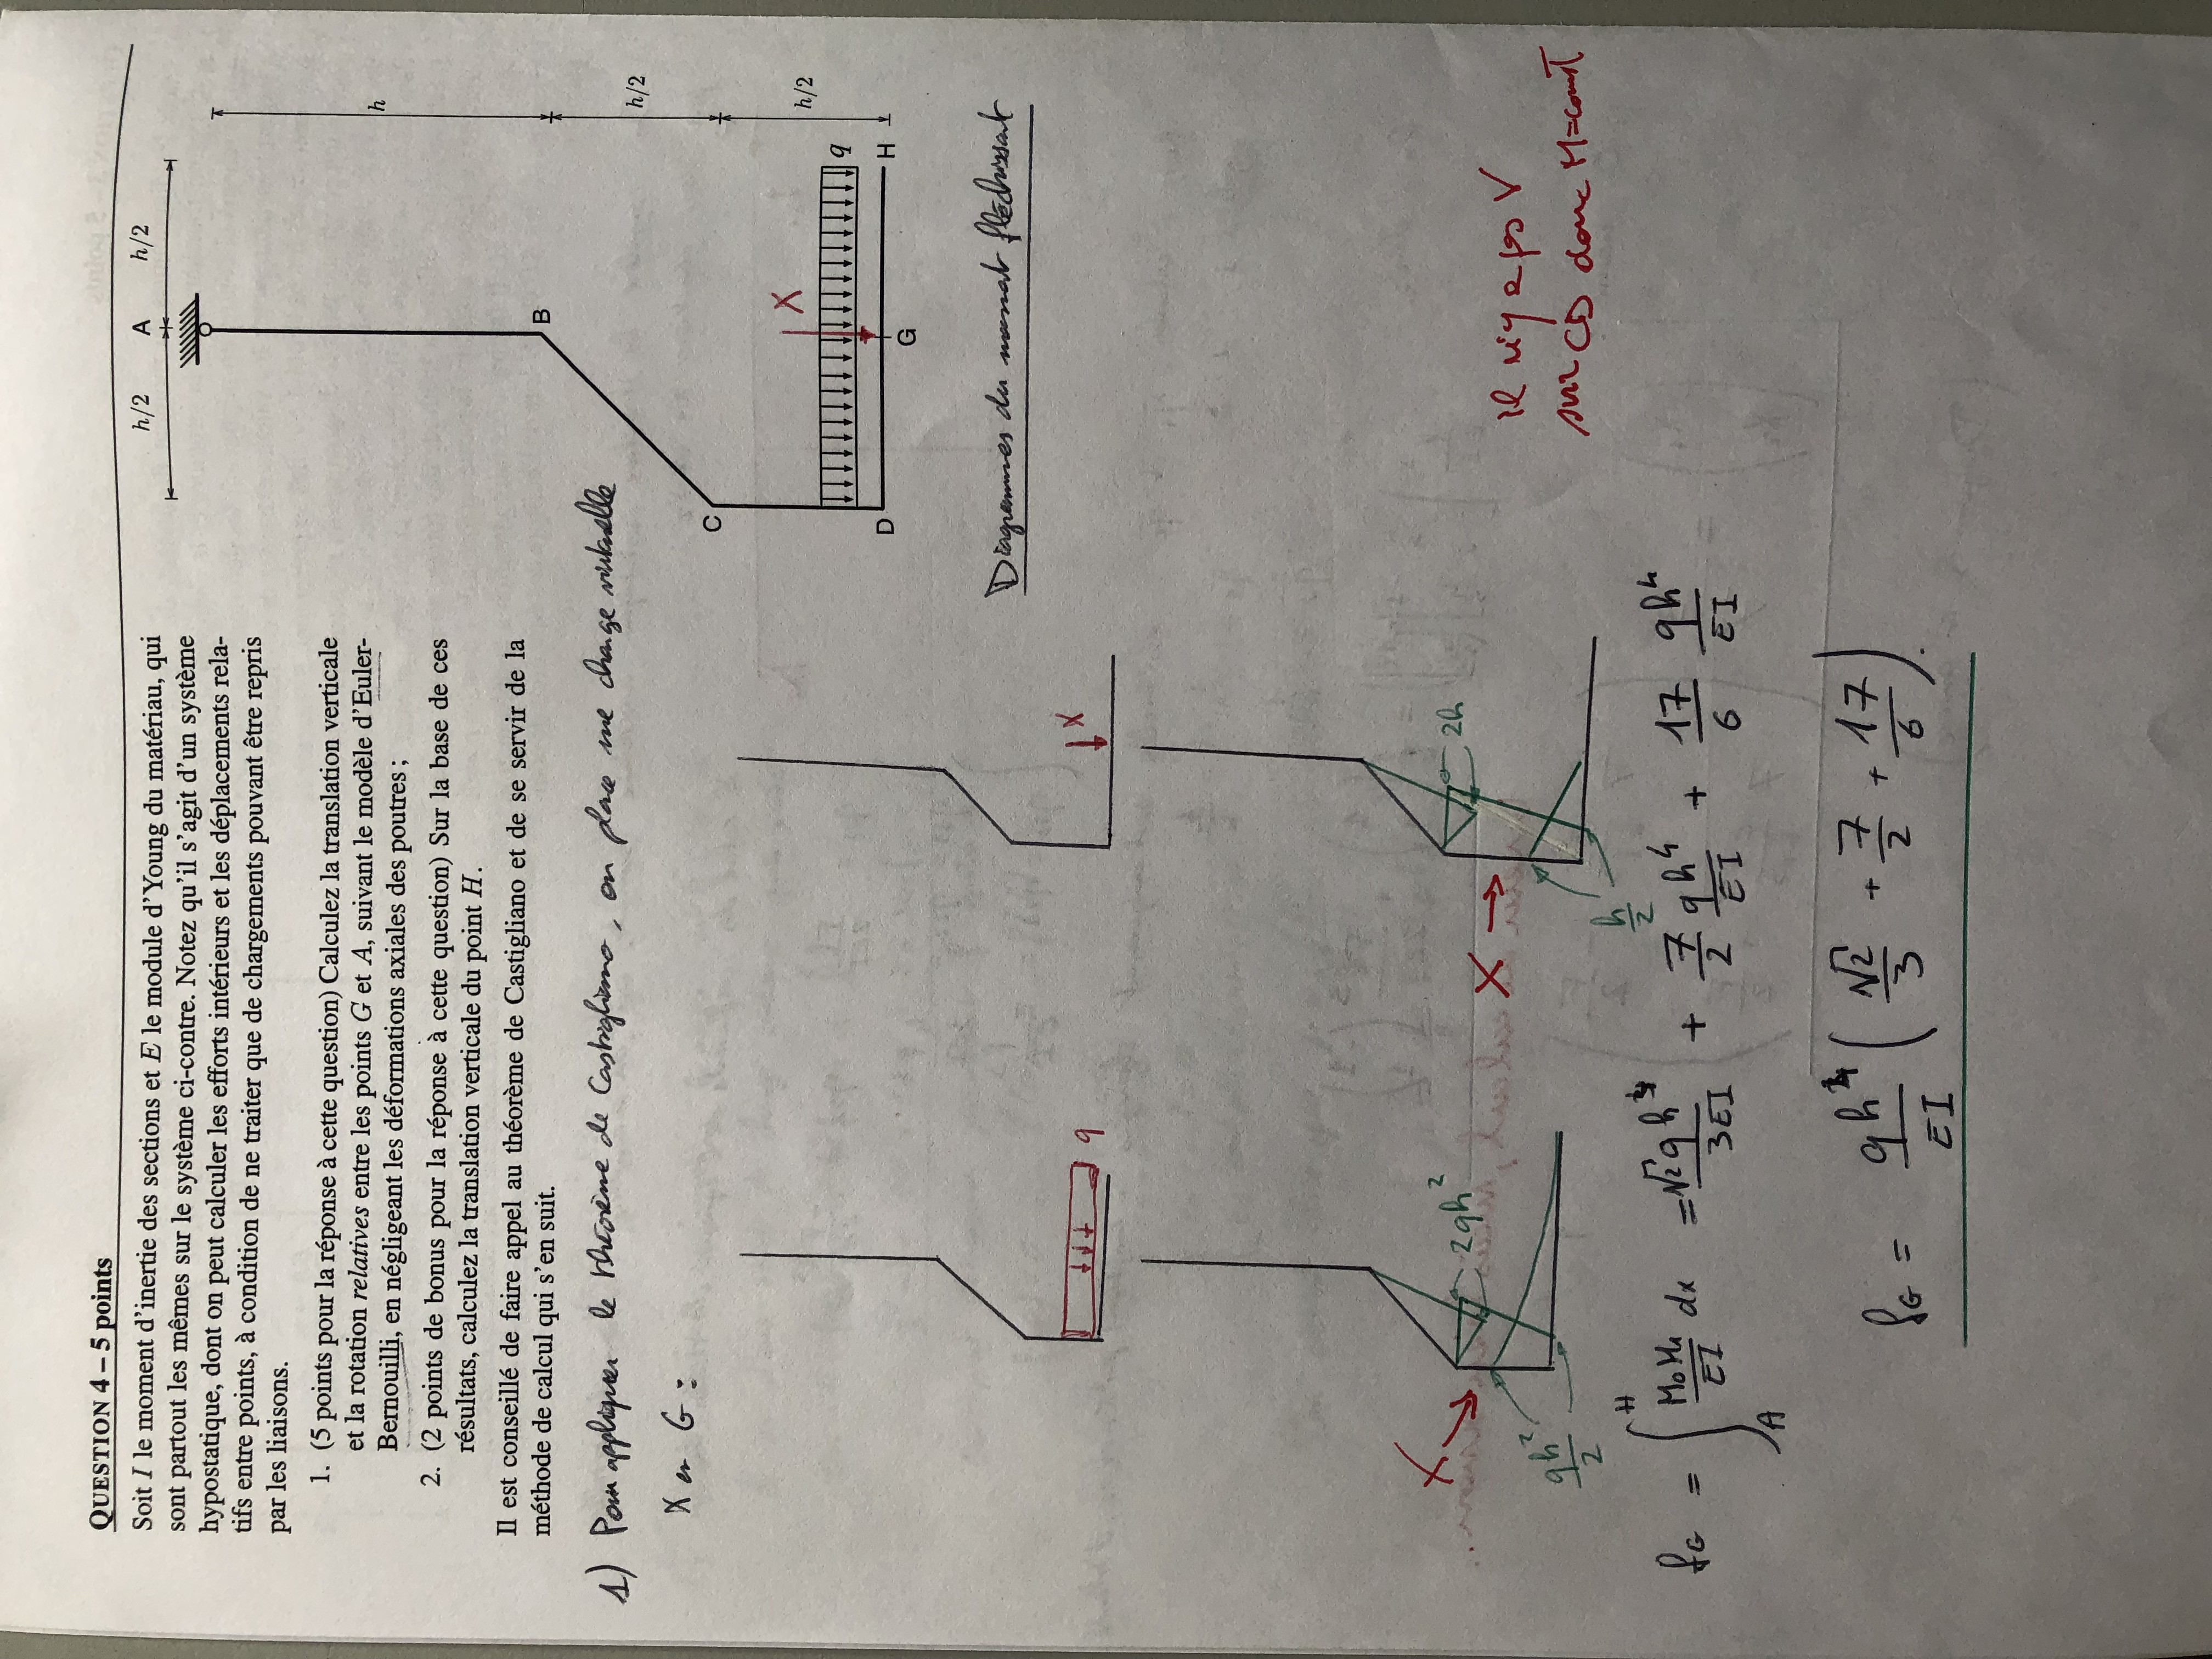 QUESTION 4 – 5 points
Soit I le moment d'inertie des sections et E le module d'Young du matériau, qui
sont partout les mêmes sur le système ci-contre. Notez qu'il s'agit d'un système
hypostatique, dont on peut calculer les efforts intérieurs et les déplacements rela-
tifs entre points, à condition de ne traiter que de chargements pouvant être repris
par les liaisons.
1. (5 points pour la réponse à cette question) Calculez la translation verticale
et la rotation relatives entre les points G et A, suivant le modèle d'Euler-
Bernouilli, en négligeant les déformations axiales des poutres ;
2. (2 points de bonus pour la réponse à cette question) Sur la base de ces
résultats, calculez la translation verticale du point H.
Il est conseillé de faire appel au théorème de Castigliano et de se servir de la
méthode de calcul qui s'en suit.
h/2 A h/2
B
C
D
G
H
X
q
h
h/2
h/2
1) Pour appliquer le théorème de Castigliano, on place une charge virtuelle
X en G :
q
X
Diagrammes du moment fléchissant
X
qh²/2
2qh²
X
h/2
2h
il n'y a ps V
sur CD donc M=const
f_G = ∫_A^H M₀M₁/EI dx = √2qh⁴/3EI + 7/2 qh⁴/EI + 17/6 qh⁴/EI
f_G = qh⁴/EI ( √2/3 + 7/2 + 17/6 ).